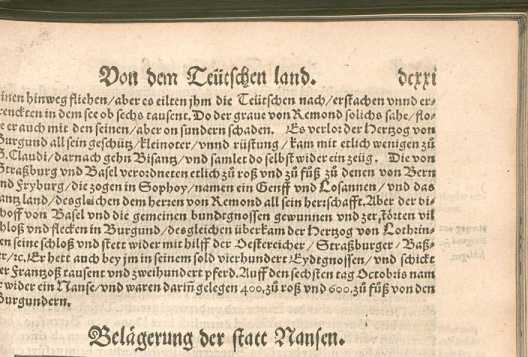 Von dem Teütschen land. dcxxi
inen hinweg fliehen/aber es eilten jhm die Teütschen nach/erstachen vnnd er-
trenckten in dem see ob sechs tausent. Do der graue von Remond solichs sahe/flo-
he er auch mit den seinen/aber on sundern schaden. Es verlor der Hertzog von
Burgund all sein geschütz/kleinoter/vnnd rüstung/kam mit etlich wenigen zů
S. Claudi/darnach gehn Bisantz/vnd samlet do selbst wider ein zeüg. Die von
Straßburg vnd Basel verordneten etlich zů roß vnd zů fůß zů denen von Bern
vnd Fryburg/die zogen in Sophoy/namen ein Genff vnd Losannen/vnd das
gantz land/desgleichen dem herren von Remond all sein herschafft. Aber der bi-
schoff von Basel vnd die gemeinen bundtgnossen gewunnen vnd zerstörten vil
schloß vnd flecken in Burgund/desgleichen überkam der Hertzog von Lothrin-
gen seine schloß vnd stett wider mit hilff der Oestereicher/Straßburger/Baß-
ler/rc. Er hett auch bey jm in seinem sold vierhundert Eydtgnossen/vnd schickt
der Frantzoß tausent vnd zweihundert pferd. Auff den sechsten tag Octobris nam
er wider ein Nanse/vnd waren darin̄ gelegen 400. zů roß vnd 600. zů fůß von den
Burgundern.
Belägerung der statt Nansen.